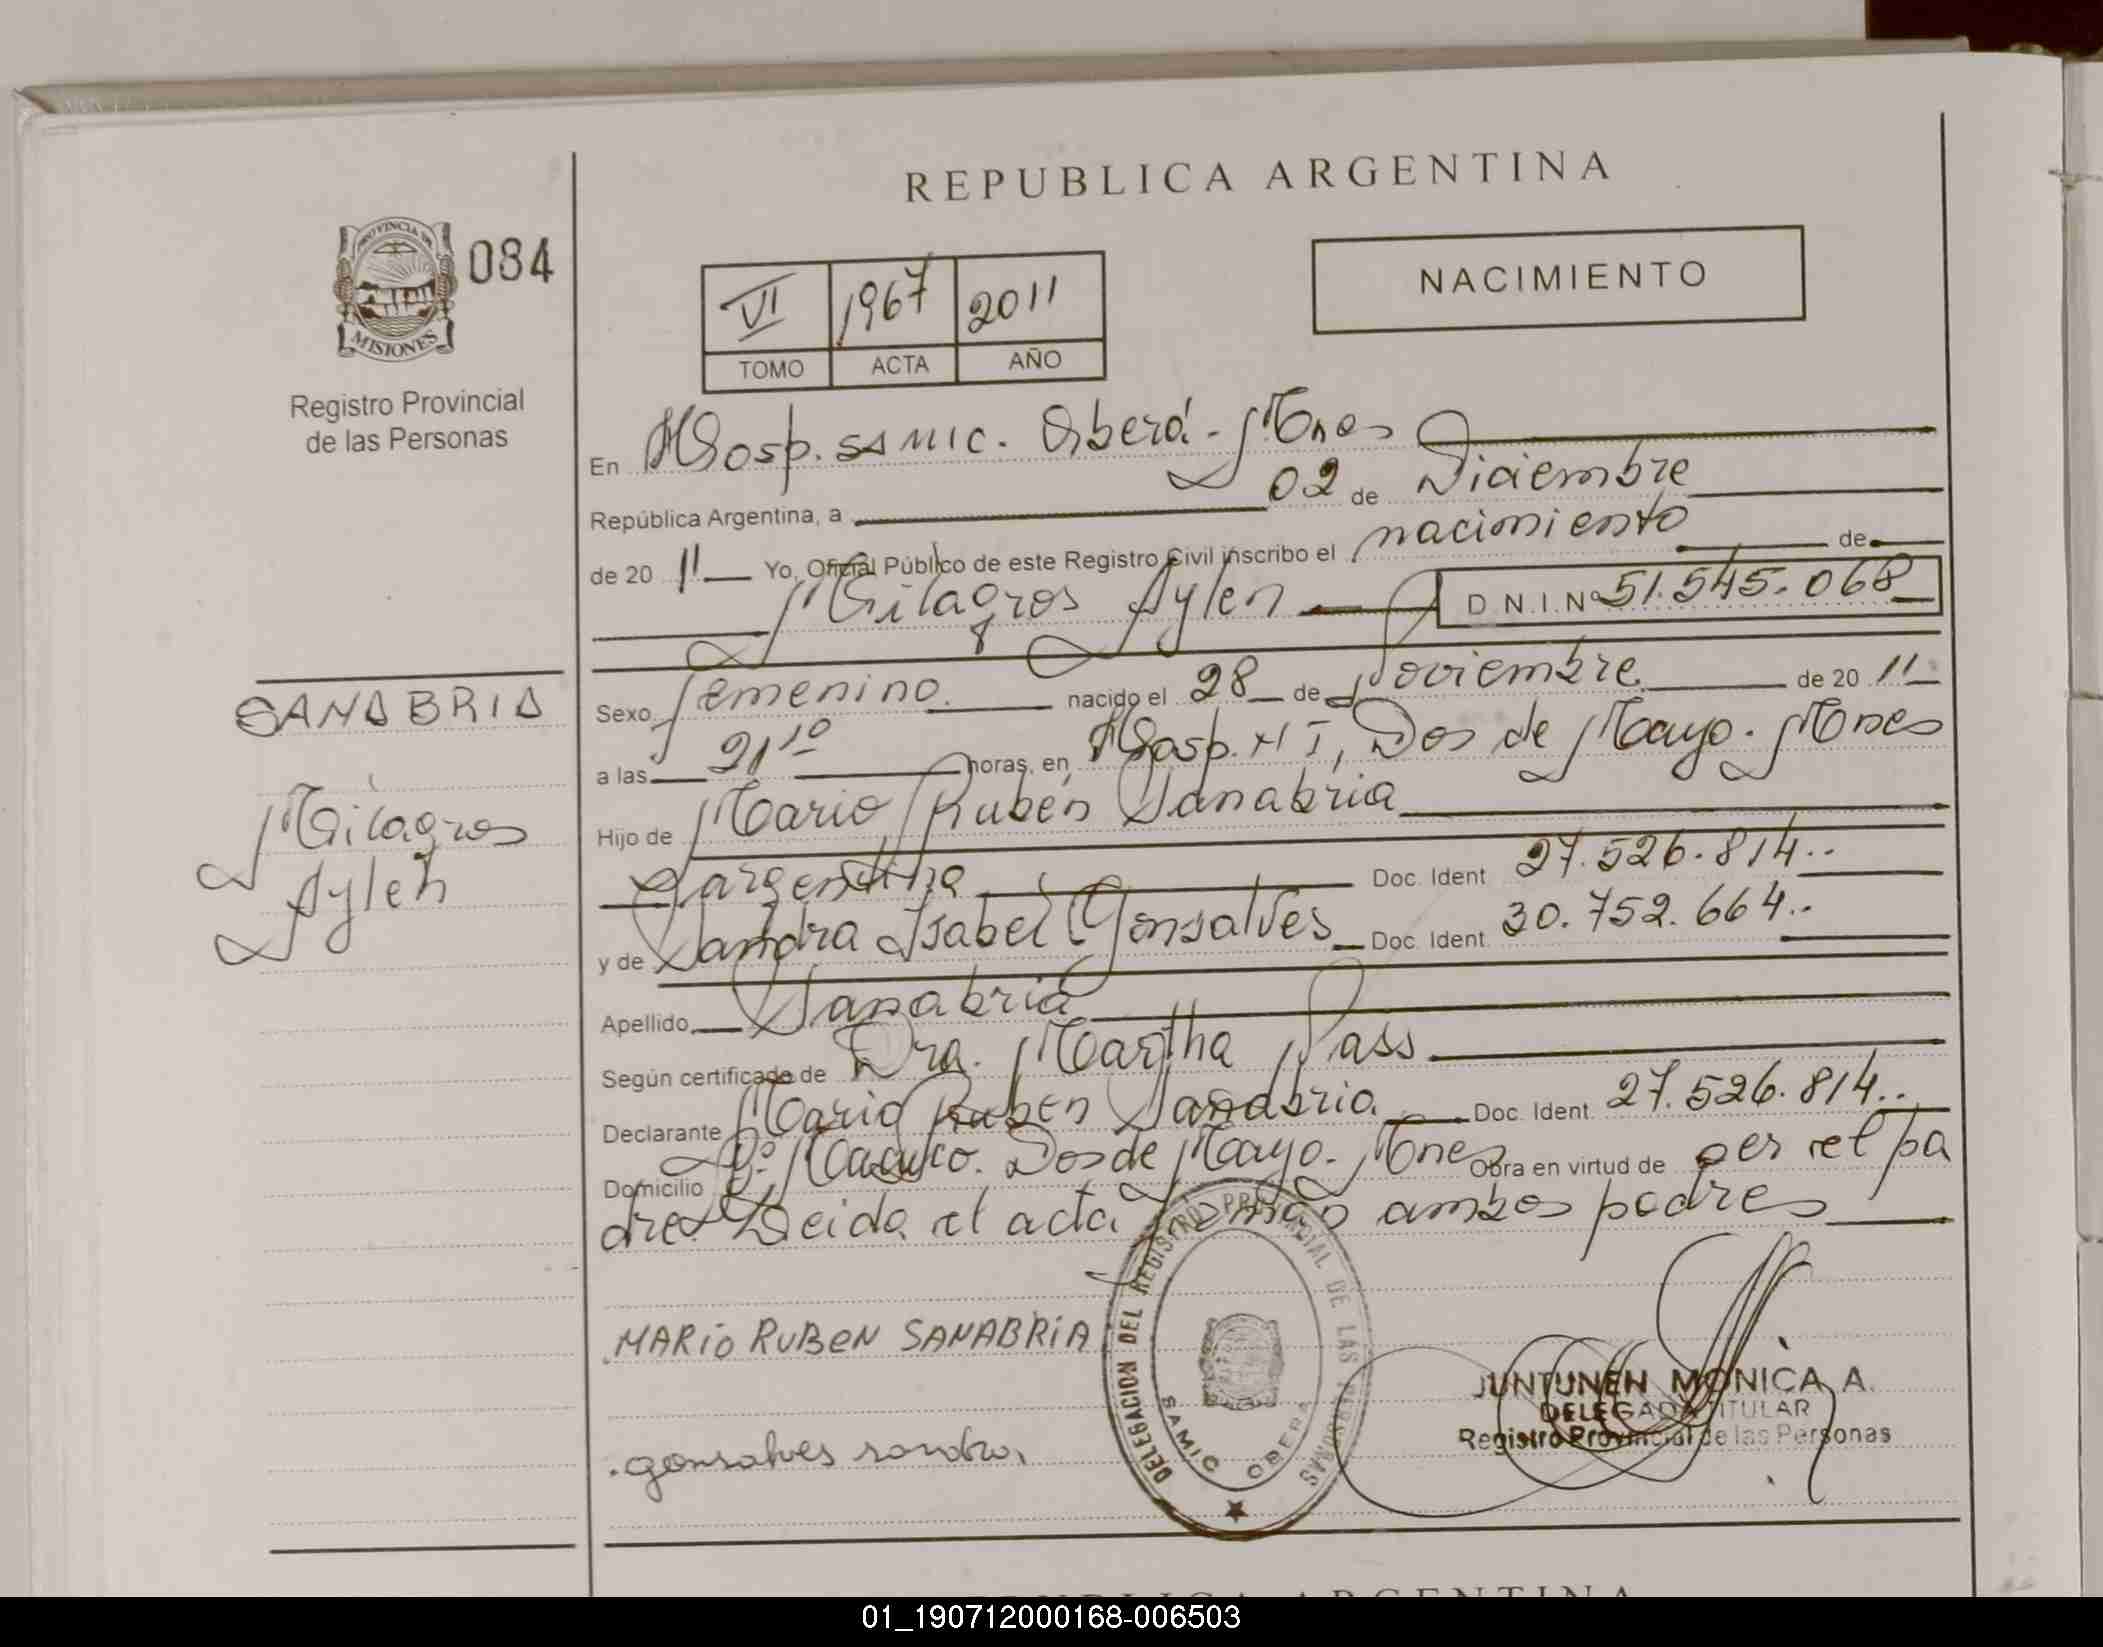 REPUBLICA ARGENTINA
PROVINCIA DE
MISIONES
084
Registro Provincial
de las Personas
VI 1967 2011
TOMO ACTA AÑO
NACIMIENTO
En Hosp. SAMIC. Oberá - Mnes
República Argentina, a 02 de Diciembre
de 20 11 Yo, Oficial Público de este Registro Civil inscribo el nacimiento de
Milagros Aylen D.N.I. Nº 51.545.068
SANABRIA
Milagros
Aylen
Sexo femenino. nacido el 28 de Noviembre de 20 11
a las 21 10 horas, en Hosp. N I, Dos de Mayo. Mnes
Hijo de Mario Rubén Sanabria
argentina Doc. Ident 27.526.814..
y de Sandra Isabel Gonsalves Doc. Ident. 30.752.664..
Apellido Sanabria
Según certificado de Dra. Martha
Declarante Mario Ruben Sanabria. Doc. Ident. 27.526.814..
Domicilio Dos de Mayo. Mnes Obra en virtud de ser el pa
dre Leida el acta firman ambos padres
MARIO RUBEN SANABRIA
gonsalves sandra.
DELEGACION DEL REGISTRO PROVINCIAL DE LAS PERSONAS
SAMIC OBERA
JUNTUNEN MONICA A.
DELEGADA TITULAR
Registro Provincial de las Personas
REPUBLICA ARGENTINA
01_190712000168-006503